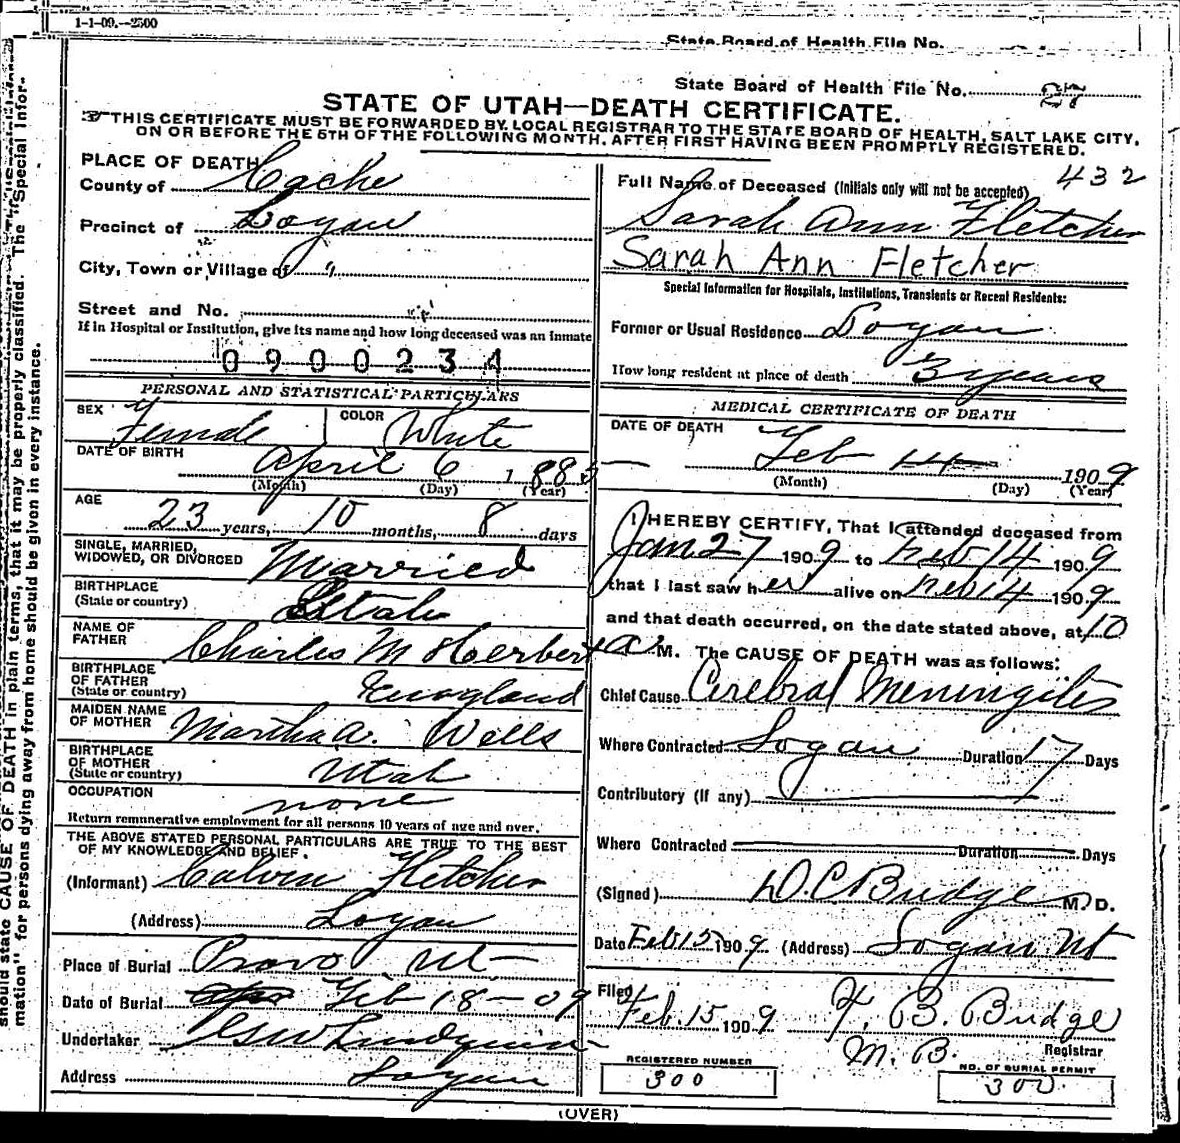 1-1-09.--2500
State Board of Health File No.
State Board of Health File No. 27
STATE OF UTAH—DEATH CERTIFICATE.
THIS CERTIFICATE MUST BE FORWARDED BY LOCAL REGISTRAR TO THE STATE BOARD OF HEALTH, SALT LAKE CITY,
ON OR BEFORE THE 5TH OF THE FOLLOWING MONTH, AFTER FIRST HAVING BEEN PROMPTLY REGISTERED.
PLACE OF DEATH
County of Cache
Precinct of Logan
City, Town or Village of "
Street and No. "
If in Hospital or Institution, give its name and how long deceased was an Inmate
0900234
PERSONAL AND STATISTICAL PARTICULARS
SEX Female COLOR White
DATE OF BIRTH April 6 1885
(Month) (Day) (Year)
AGE
23 years, 10 months, 8 days
SINGLE, MARRIED,
WIDOWED, OR DIVORCED Married
BIRTHPLACE
(State or country) Utah
NAME OF
FATHER Charles M Herbert
BIRTHPLACE
OF FATHER
(State or country) England
MAIDEN NAME
OF MOTHER Martha A. Wells
BIRTHPLACE
OF MOTHER
(State or country) Utah
OCCUPATION none
Return remunerative employment for all persons 10 years of age and over.
THE ABOVE STATED PERSONAL PARTICULARS ARE TRUE TO THE BEST
OF MY KNOWLEDGE AND BELIEF.
(Informant) Calvin Fletcher
(Address) Logan
Place of Burial Provo Ut
Date of Burial Feb 18-09
Undertaker
Address Logan
432
Full Name of Deceased (Initials only will not be accepted)
Sarah Ann Fletcher
Sarah Ann Fletcher
Special Information for Hospitals, Institutions, Transients or Recent Residents:
Former or Usual Residence Logan
How long resident at place of death 3 years
MEDICAL CERTIFICATE OF DEATH
DATE OF DEATH
Feb 14 1909
(Month) (Day) (Year)
I HEREBY CERTIFY, That I attended deceased from
Jan 27 1909 to Feb 14 1909
that I last saw her alive on Feb 14 1909
and that death occurred, on the date stated above, at 10
a M. The CAUSE OF DEATH was as follows:
Chief Cause Cerebral Meningites
Where Contracted Logan Duration 17 Days
Contributory (If any)
Where Contracted Duration Days
(Signed) D.C. Budge M. D.
Date Feb 15 1909 (Address) Logan Ut
Filed
Feb. 15 1909 F. B. Budge
M. B. Registrar
REGISTERED NUMBER
300
NO. OF BURIAL PERMIT
300
(OVER)
should state CAUSE OF DEATH in plain terms, that it may be properly classified. The "Special Infor-
mation" for persons dying away from home should be given in every instance.